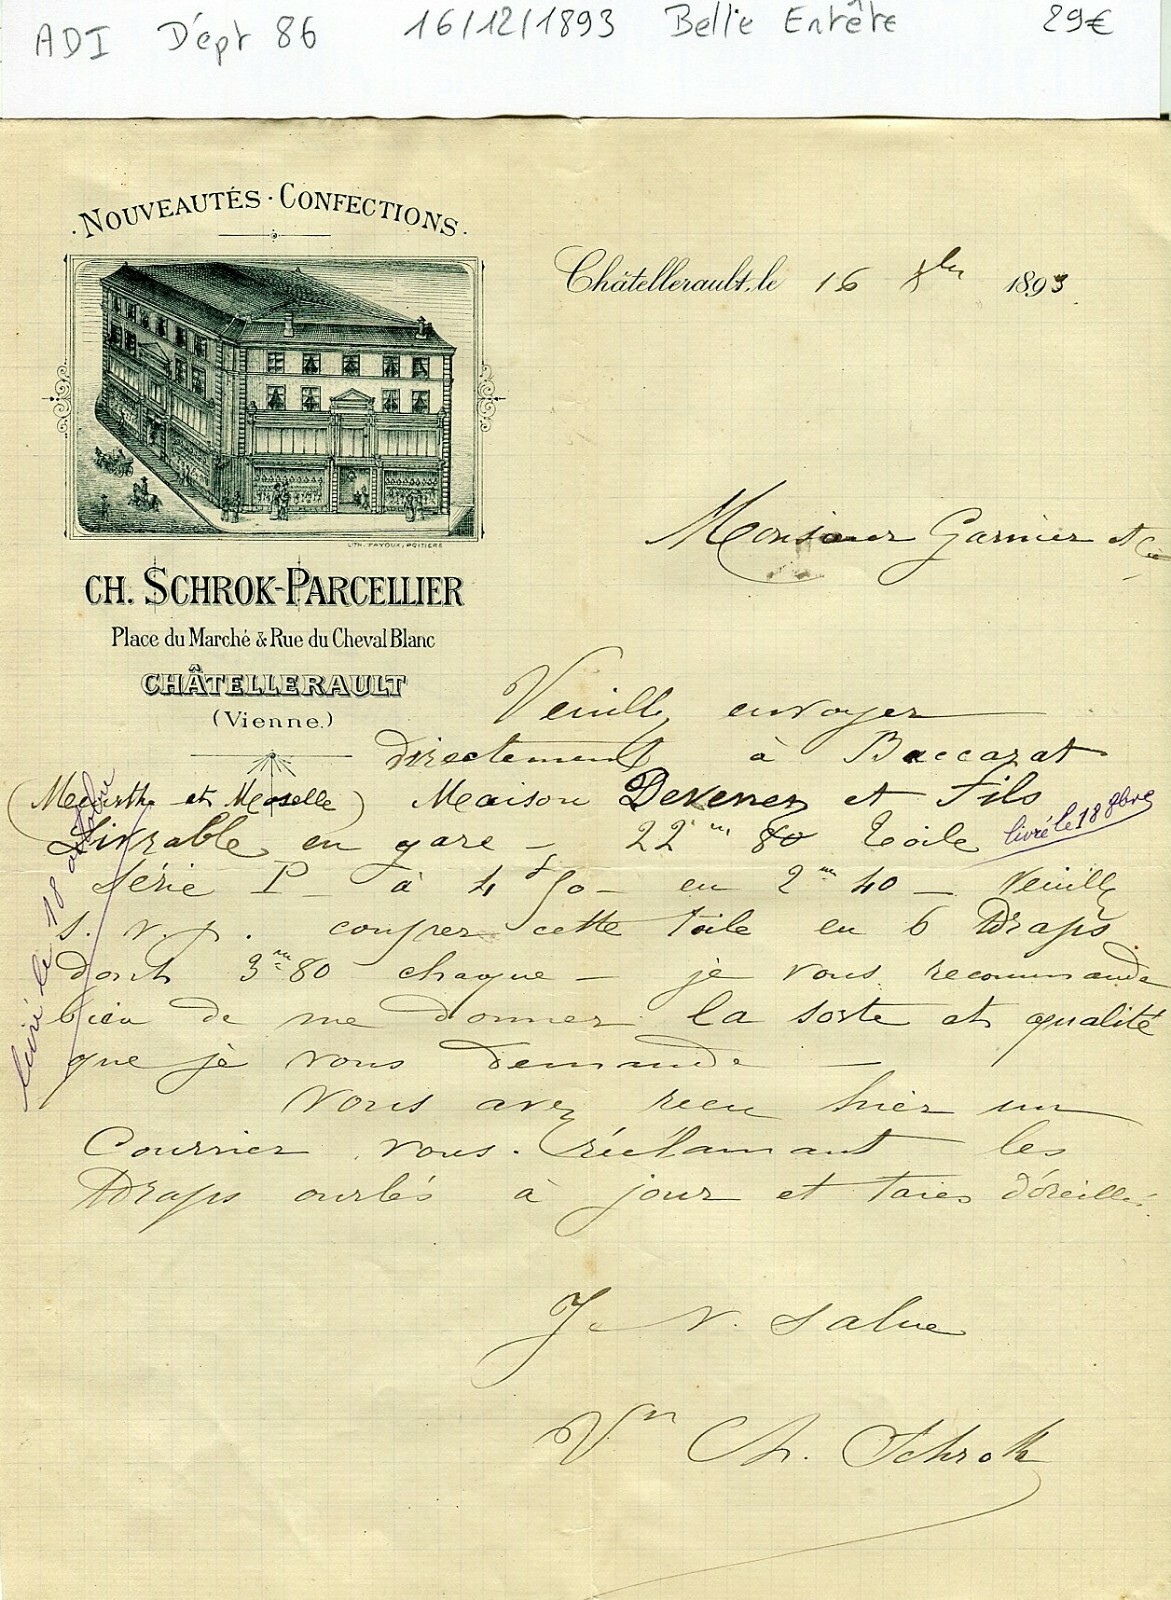 ADI Dépt 86 16/12/1893 Belle Entête 29€
NOUVEAUTÉS · CONFECTIONS
LITH. PAYOUX, POITIERS
CH. SCHROK-PARCELLIER
Place du Marché & Rue du Cheval Blanc
CHÂTELLERAULT
(Vienne.)
Châtellerault, le 16 1893
Monsieur Garnier et Cie
Veuillez envoyer
directement à Baccarat
(Meurthe et Moselle) Maison Devenez et Fils
Livrable en gare – 22 m 80 Toile
livré le 18 8bre
Série P – à 4 f 50 – en 2 m 40 – Veuillez
s. v. p. couper cette toile en 6 Draps
dont 3 m 80 chaque – je vous recommande
bien de me donner la sorte et qualité
que je vous demande –
livré le 18 octobre
Vous avez recu hier un
Courrier vous réclamant les
Draps ourlés à jour et taies d'oreillés.
Je v. salue
Vve Ch. Schrok